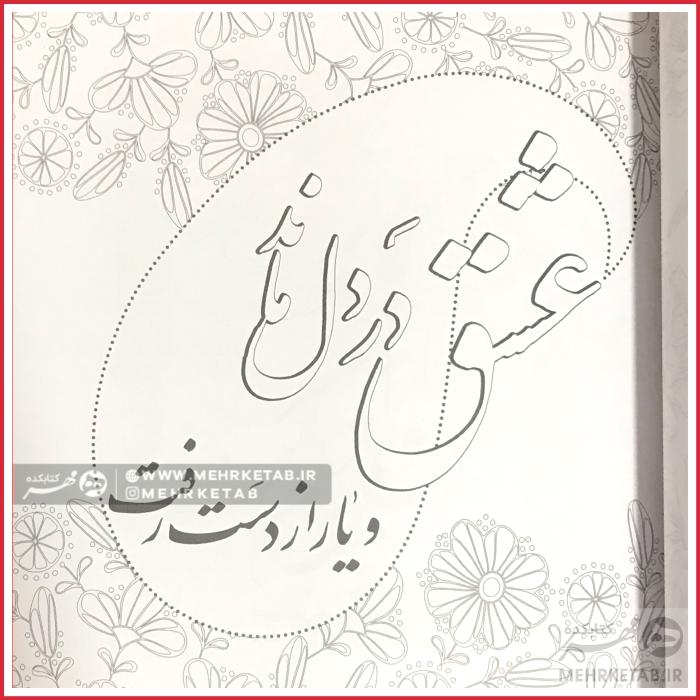 عشق دَر دل ماند
و یار از دست رفت
کتابکده
مهر
WWW.MEHRKETAB.IR
MEHRKETAB
کتابکده
مهر
MEHRKETAB.IR